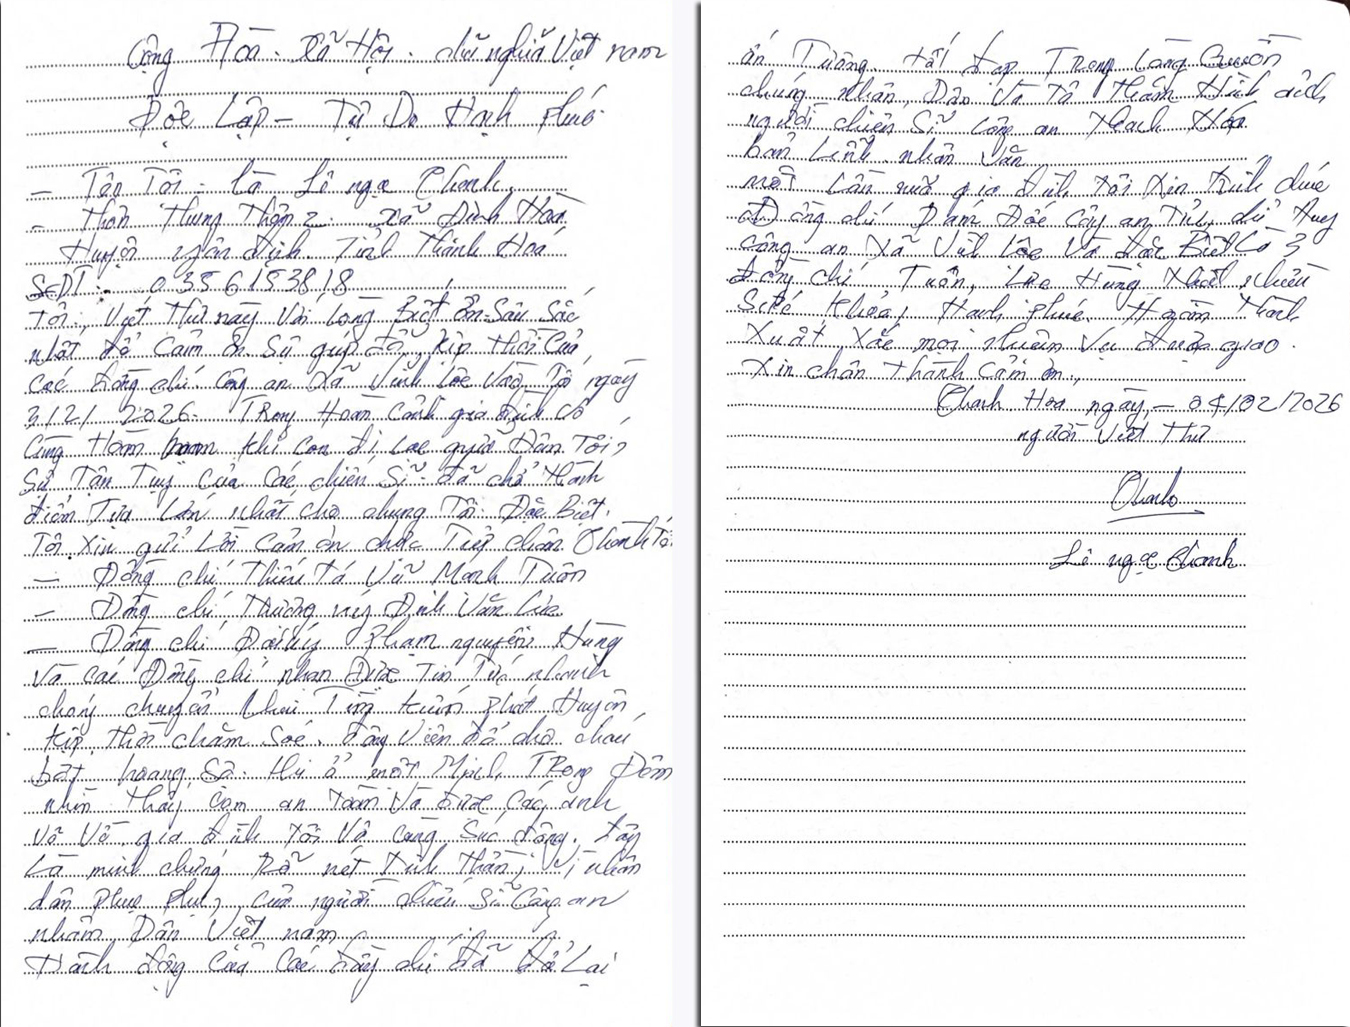 Cộng Hòa. Xã Hội. chủ nghĩa Việt nam
Độc Lập – Tự Do Hạnh phúc
– Tên Tôi: là Lê ngọc Chanh.
– thôn thung thôn 2. xã Định Hoà
Huyện yên định. Tỉnh Thanh Hoá
SĐT: 0356153818
Tôi, Viết thư này với lòng Biết ơn Sâu Sắc
nhất để Cảm ơn Sự giúp đỡ, kịp thời Của
các đồng chí. công an xã Vĩnh Lộc vào Tố ngày
3/2/2026. Trong Hoàn Cảnh gia đình Có
cùng khi con đi Lạc giữa Đêm Tối,
Sự Tận Tụy của Các chiến Sĩ đã chở thành
điểm Tựa Lớn nhất cho chúng Tôi. Đặc Biệt.
Tôi Xin gửi Lời Cảm ơn chân
– Đồng chí Thiếu tá Vũ Mạnh Tuân
– Đồng chí Thượng uý Định Văn Lực
– Đồng chí Đại úy Phạm nguyên Hùng
Và các Đồng chí nhận Được Tin Tức nhanh
chóng chuyển khai Tìm kiếm phát Huyện
kịp thời chăm Soc. động Viên để cho cháu
bớt hoang Sợ. Hi ở một Mình Trong Đêm
nhìn thấy con an toàn Và được Các anh
vỗ Về. gia đình tôi Vô cùng Xúc động. Đây
Là minh chứng Rõ nét tinh thần, Vì nhân
dân phục phụ, của người chiến Sĩ Công an
nhâm Dân Việt nam
Hành động Của Các đồng chí đã để Lại
ấn Tượng. tốt đẹp Trong Lòng Quần
chúng nhân Dân Và Tô thắm Hình ảnh
người chiến Sĩ công an
bản Lĩnh. nhân Văn
một Lần nữa gia đình tôi xin
chí Đảng công an Tỉnh,
công an Xã Vĩnh Lộc Và Đặc Biệt Là 3
đồng chí Tuân, Lực Hùng thật nhiều
Sức khỏe, Hạnh phúc. Hoàn thành
Xuất, Xắc mọi nhiệm Vụ được giao.
Xin chân thành Cảm ơn.,
Thanh Hoa ngày, – 04/02/2026
người Viết thư
Chanh
Lê ngọc Chanh